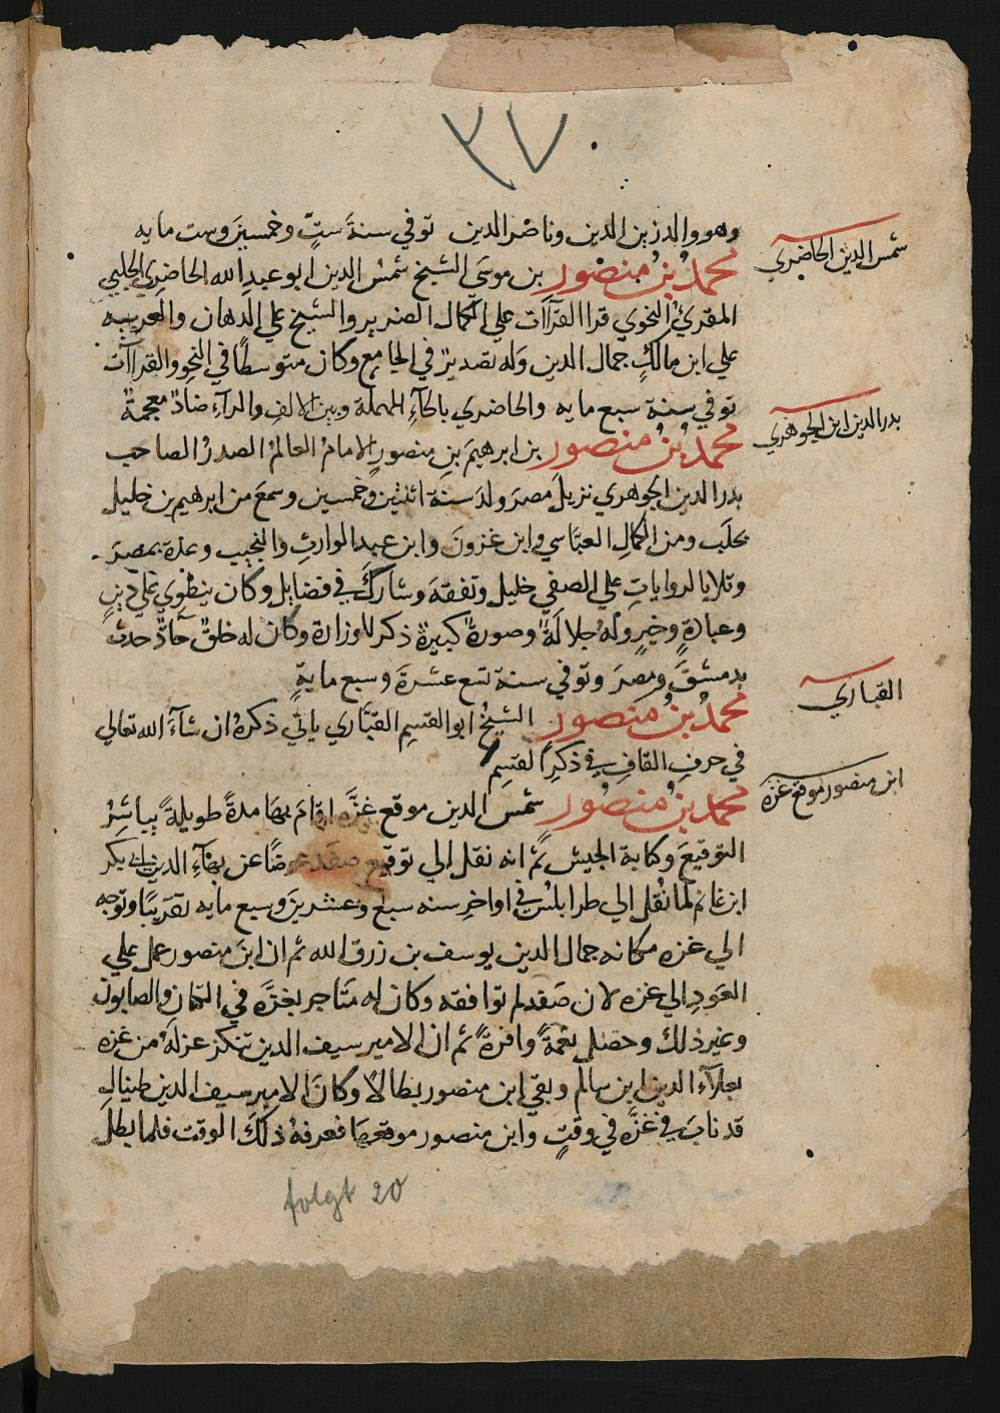 ٣٧
وهو والد زين الدين وناصر الدين توفي سنة ستٍّ وخمسين وست مايه
شمس الدين الحاضري
محمد بن منصور بن موسى الشيخ شمس الدين ابو عبد الله الحاضري الحلبي
المقرئ النحوي قرا القرآآت علي الكمال الضرير والشيخ علي الدهان والعربيه
علي ابن مالكٍ جمال الدين وله تصدير في الجامع وكان متوسطًا في النحو والقرآآت
توفي سنة سبع مايه والحاضري بالحآء المهملة وبين الالف والرآء ضادٌ معجمةٌ
بدر الدين ابن الجوهري
محمد بن منصور بن ابرهيم بن منصور الامام العالم الصدر الصاحب
بدر الدين الجوهري نزيل مصر ولد سنة اثنتين وخمسين وسمع من ابرهيم بن خليل
بحلب ومن الكمال العباسي وابن غزون وابن عبد الوارث والنجيب وعدة بمصر
وتلا بالروايات علي الصفي خليل وتفقه وشارك في فضايل وكان ينطوي علي دينٍ
وعبادةٍ وخيرٍ وله جلالة وصورة كبيرة ذكر للوزارة وكان له خلقٌ حادٌّ حدث
بدمشق ومصر وتوفي سنة تسع عشرة وسبع مايةٍ
القباري
محمد بن منصور الشيخ ابو القسيم القبّاري ياتي ذكره ان شآء الله تعالي
في حرف القاف في ذكر القسيم
ابن منصور موقع غزة
محمد بن منصور شمس الدين موقع غزَّه اقام بها مدةً طويلةً يباشر
التوقيع وكتابة الجيش ثم انه نقل الي توقيع صفد عوضًا عن بهآء الدين ابي بكر
ابن غانم لما نُقل الي طرابلس في اواخر سنه سبع وعشرين وسبع مايه تقريبًا وتوجه
الي غزه مكانه جمال الدين يوسف بن رزق الله ثم ان ابن منصور عمل علي
العود الي غزه لان صفد لم توافقه وكان له متاجر بغزَّه في الكتان والصابون
وغير ذلك وحصل نعمةً وافرةً ثم ان الامير سيف الدين تنكز عزله من غزه
بعلآء الدين ابن سالم وبقي ابن منصور بطالاً وكان الامير سيف الدين طينال
قد ناب في غزَّه في وقتٍ وابن منصور موقعها فعرفه ذلك الوقت فلما بطل
folgt 20